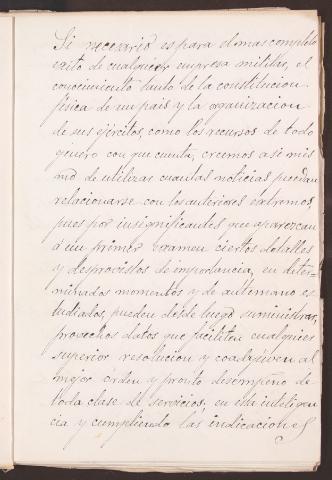 Si necesario es para el mas completo
exito de cualquier empresa militar, el
conocimiento tanto de la constitucion
fisica de un pais y la organizacion
de sus ejércitos, como los recursos de todo
género con que cuenta, creemos asi mis
mo de utilizar cuantas noticias puedan
relacionarse con los anteriores extremos,
pues por insignificantes que aparezcan
á un primer examen ciertos detalles
y desprovistos de importancia, en deter=
minados momentos y de antemano es
tudiados, pueden desde luego suministrar,
provechos datos que faciliten cualquier
superior resolucion y coadyuven al
mejor órden y pronto desempeño de
toda clase de servicios; en esta inteligen
cia y cumpliendo las indicaciones